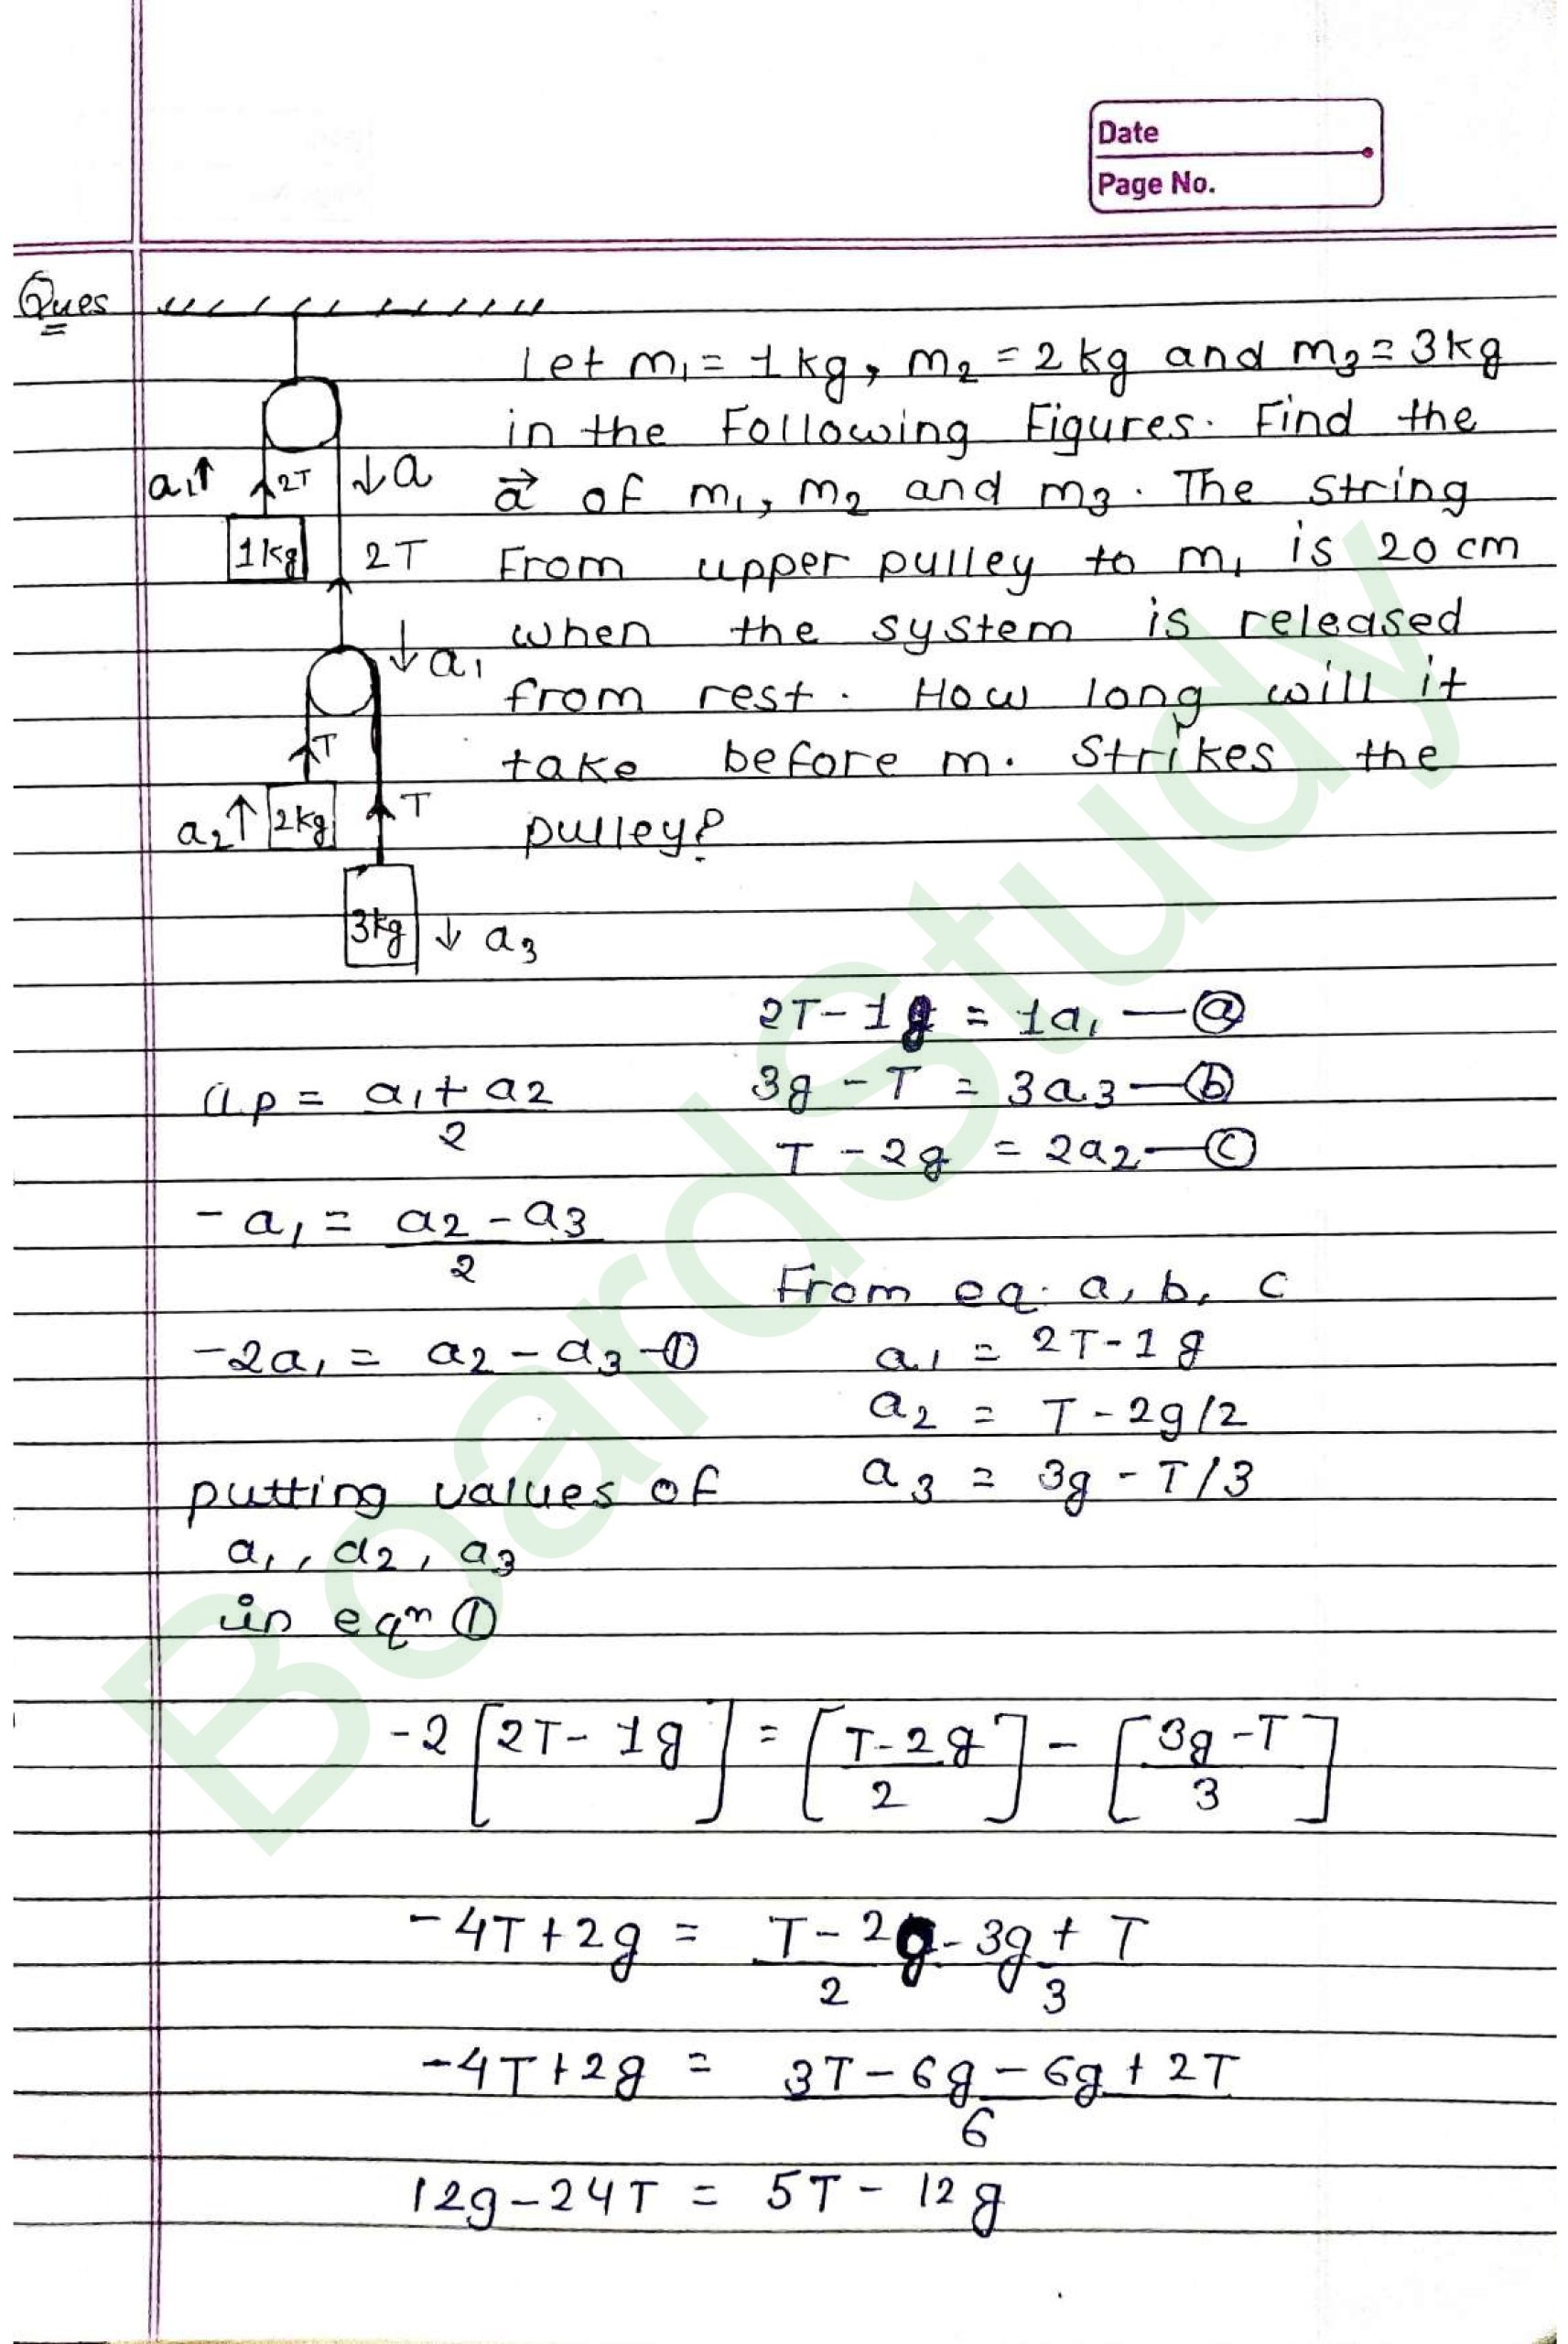 Date
Page No.
Ques
Let m₁ = 1 kg, m₂ = 2 kg and m₃ = 3 kg
in the Following Figures. Find the
a⃗ of m₁, m₂ and m₃. The string
From upper pulley to m₁ is 20 cm
when the system is released
from rest. How long will it
take before m. Strikes the
pulley?
a₁↑ 2T ↓a
1kg 2T
↓a₁
T
a₂↑ 2kg T
3kg ↓ a₃
2T - 1g = 1a₁ — ⓐ
ap = a₁ + a₂ / 2
3g - T = 3a₃ — ⓑ
T - 2g = 2a₂ — ⓒ
-a₁ = a₂ - a₃ / 2
From eq. a, b, c
-2a₁ = a₂ - a₃ - ①
a₁ = 2T - 1g
a₂ = T - 2g/2
a₃ = 3g - T/3
putting values of
a₁, a₂, a₃
in eqⁿ ①
-2 [2T - 1g] = [T - 2g / 2] - [3g - T / 3]
-4T + 2g = T - 2g / 2 - 3g + T / 3
-4T + 2g = 3T - 6g - 6g + 2T / 6
12g - 24T = 5T - 12g
BoardStudy